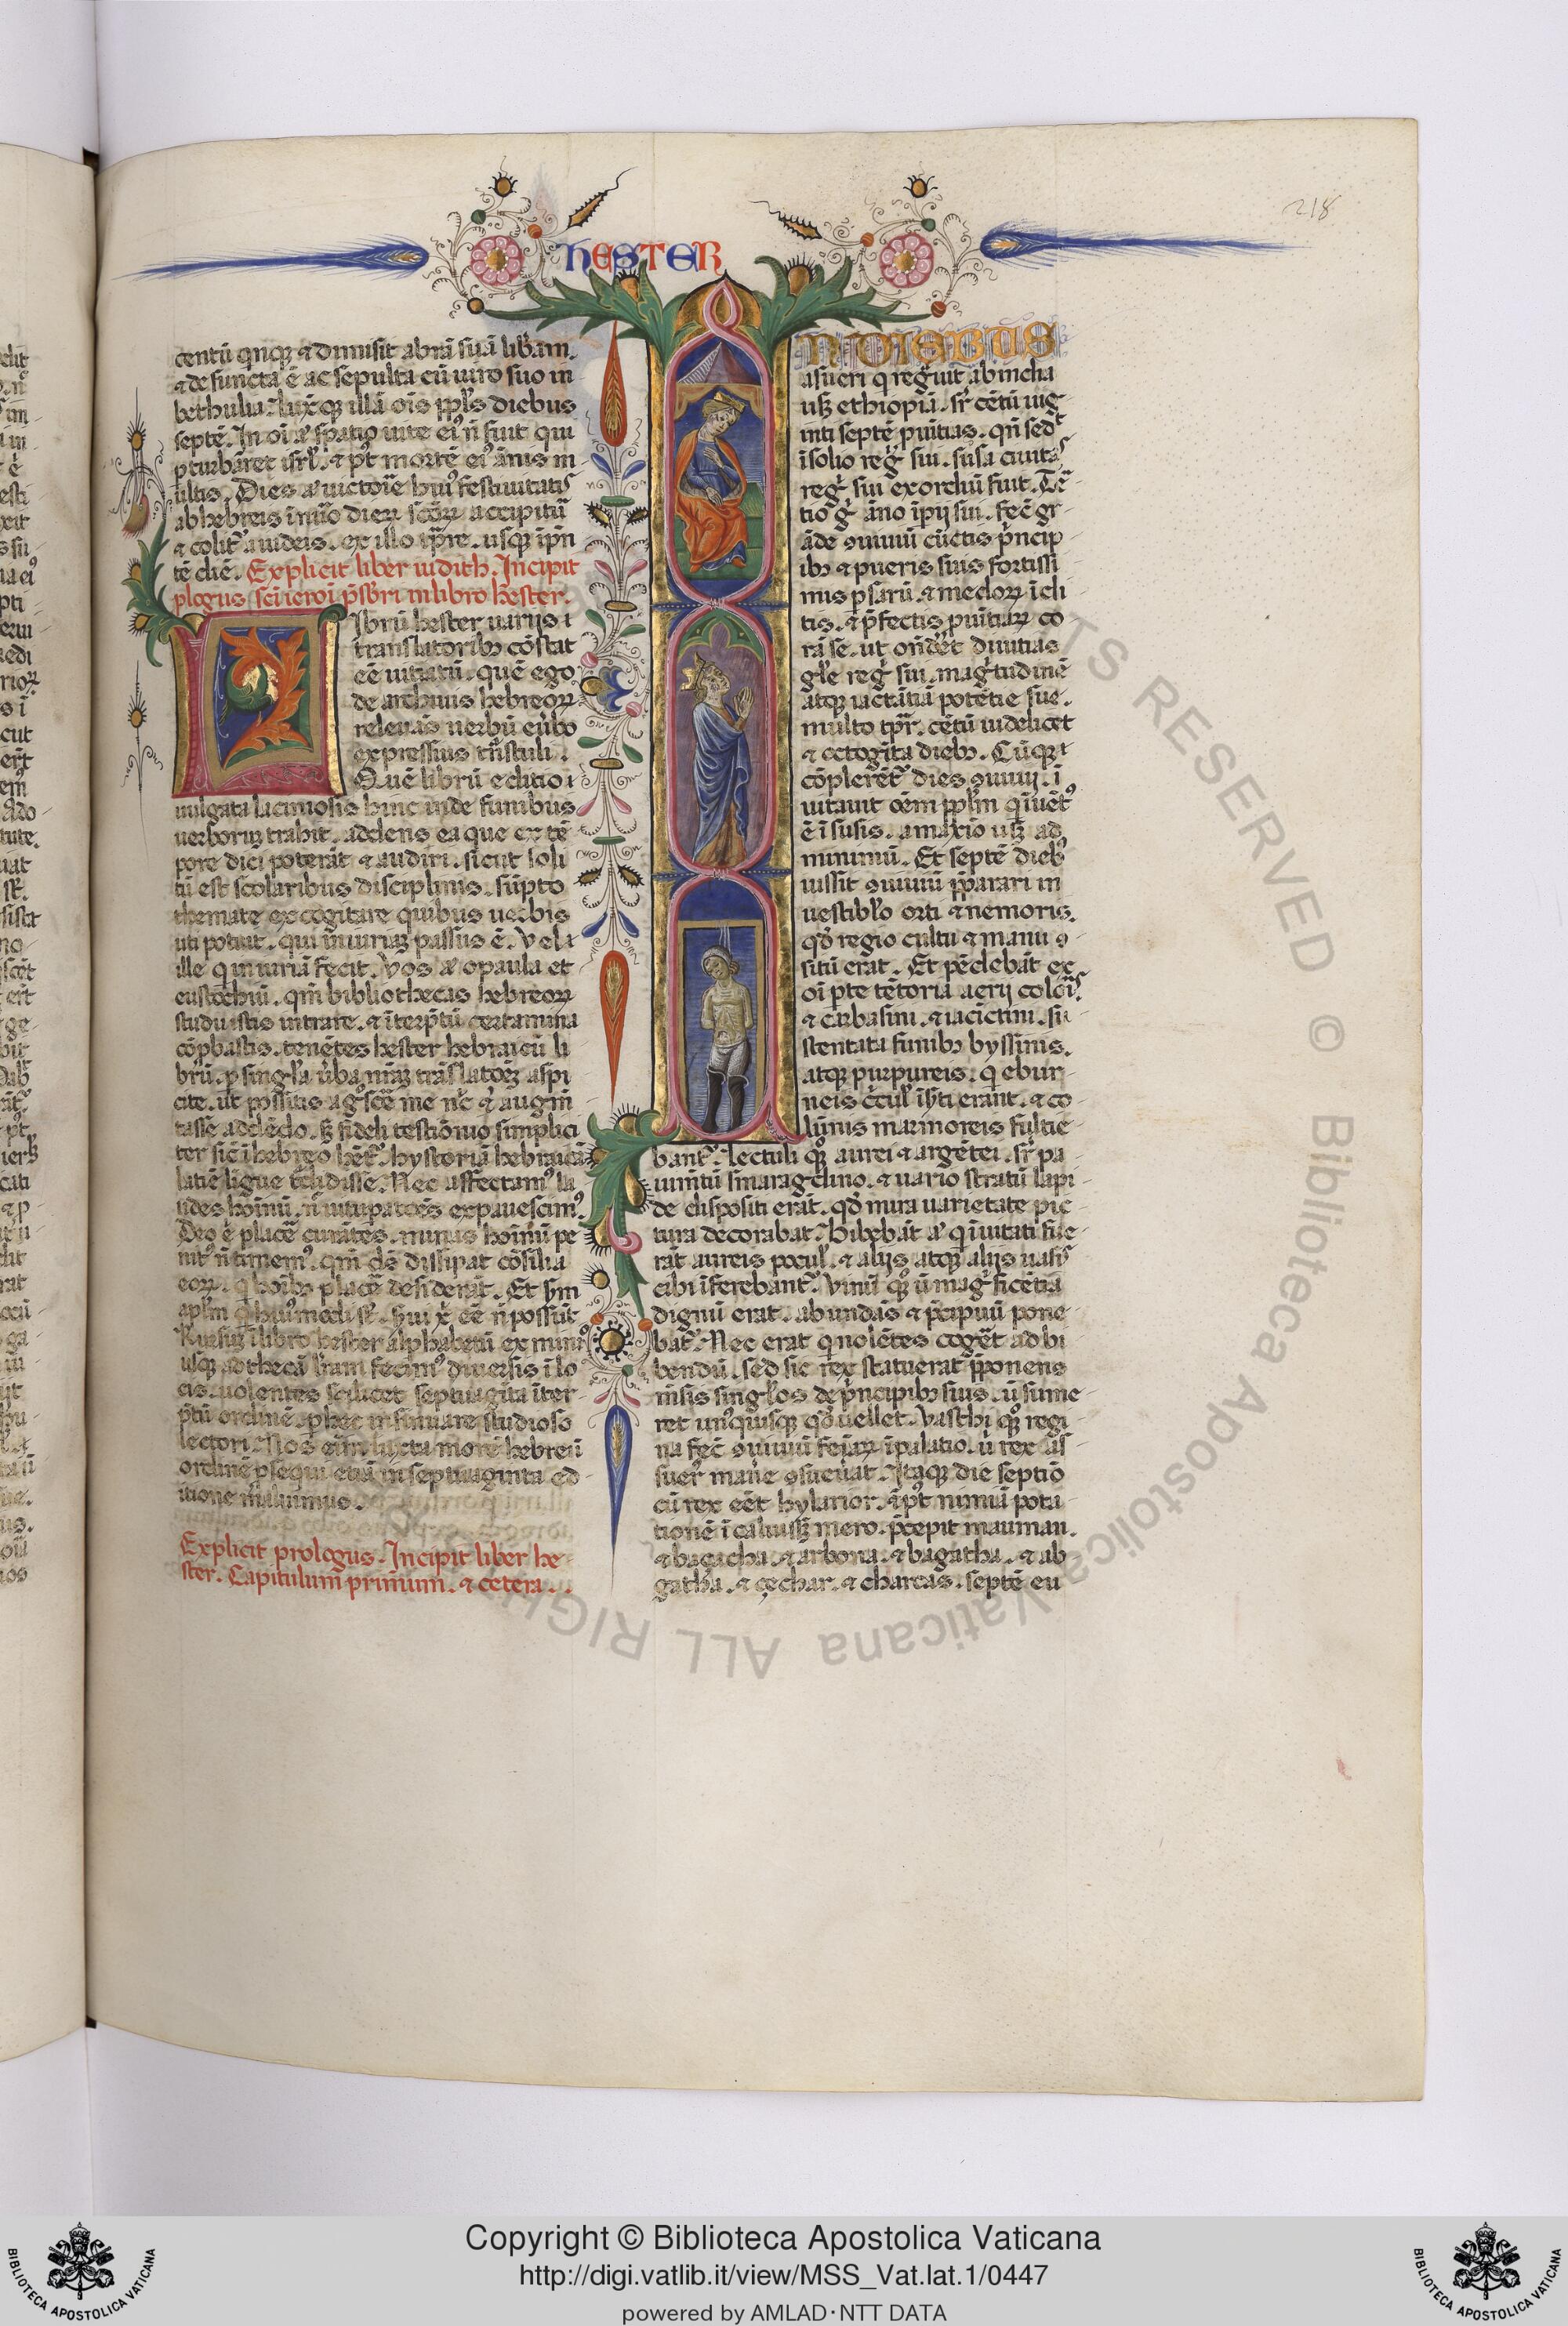 218
HESTER
centū qnqȝ ⁊ dimisit abrā suā lib̄am.
⁊ defuncta ē ac sepulta cū uiro suo in
bethulia. luxꝫqȝ illā oīs pp̄ls diebus
septē. In oī aͬ spatio uite eiꝰ ñ fuit qui
pturbaret isrl̄. ⁊ pt̄ mortē eiꝰ ānis m
ultis. Dies aͬ uictorie huiꝰ festiuitatis
ab hebreis ī nūo dieꝝ scōꝝ accipitur̄
⁊ colit̄ a iudeis. ex illo tp̄re. usqȝ ī p̄n
tē diē. Explicit liber iudith. Incipit
plogus sci ieroī p̄sbr̄i in libro hester.
Librū hester uarijs ī
translatoribȝ cōstat
eē uitiatū. quē ego
de archiuis hebreoꝝ
releuās uerbū eūbo
expressius trāstuli.
Quē librū editio ī
uulgata laciniosis hinc inde funibus
uerboruȝ trahit. addens ea que ex tē
pore dici poterāt ⁊ audiri. sicut soli
tū est scolaribus disciplinis. sūpto
themate excogitare quibus uerbis
uti potuit. qui iniuriaȝ passus ē. vel ī
ille q̄ iniuriā fecit. vos aͬ o paula et
eustochiū. qm̄ bibliothecas hebreoꝝ
studuistis intrare. ⁊ īterp̄tū certamina
cōpbastis. tenētes hester hebraicū li
brū. p singl̄a ūba nr̄aȝ trāslatōeȝ aspi
cite. ut possitis agͦscē me nc̄ q̄ augm̄
tasse addēdo. sȝ fideli testiōnio simplici
ter sic̄ ī hebreo hēt̄. hystoriā hebraicā
latiē ligue t̄didisse. Nec affectamꝰ la
udes hoīnū. ñ uituparcōes expauescimꝰ.
Deo ē placē curātes. minas hoīnū pe
nitꝰ ñ timemꝰ. qm̄ ds̄ dissipat cōsilia
eoꝝ. q̄ hoībȝ placē desiderāt. Et s̄m
apl̄m q̄ huiꝰmodi st̄. sui x̄ eē ñ possūt.
Rursuȝ ī libro hester alphabetū ex minio
usqȝ ad thecā l̄ram fecimꝰ diuersis ī lo
cis. uolentes scilicet septuagīta īter
p̄tū ordinē. p hec insinuare studioso
lectori. Nos eīm iuxta morē hebreū
ordinē psequi etiā in septuaginta ed
itione maluimus.
Explicit prologus. Incipit liber he
ster. Capitulum primum. ⁊ cetera.
IN DIEBUS
asueri q̄ regͣuit ab incha
usȝ ethiopiā. sr̄ cētū uig
inti septē puītias. qn̄ sedᵗ
ī solio regͥ sui. susa ciuitaˢ
regͥ sui exordiū fuit. Tē
tio gͦ āno īpij sui. fec̄ gr
āde ꝯuiuiū cūctis p̄ncip
ibȝ ⁊ pueris suis fortissi
mis psarū. ⁊ medoꝝ īcli
tis. ⁊ p̄fectis puītiaꝝ co
rā se. ut on̄dēt diuitias
gl̄e regͥ sui. magͥtudinē
atqȝ iactātiā potētie sue.
multo tp̄r. cētū uidelicet
⁊ octogīta diebȝ. Cūqȝ ī
cōplerēt̄ dies ꝯuiuij. ī
uitauit oēm pp̄lm q̄ īuētꝰ
ē ī susis. a maxīo usȝ ad
minimū. Et septē diebꝰ
iussit ꝯuiuiū p̄parari in
uestibl̄o orti ⁊ nemoris.
qd̄ regio cultu ⁊ manu ꝯ
situ erat. Et pēdebāt ex
oī pte tētoria aerij coloīˢ.
⁊ carbasini. ⁊ iacictini. su
stentata funibȝ byssinis.
atqȝ purpureis. q̄ ebur
neis c̄cul̄ īs̄ti erant. ⁊ co
lūnis marmoreis fultie
bant̄. Lectuli qͦȝ aurei ⁊ argētei. sr̄ pa
uimtū smaragdino. ⁊ uario stratū lapi
de dispositi erāt. qd̄ mira uarietate pic
tura decorabat. Bibebāt aͬ q̄ īuitati fue
rāt aureis pocul̄. ⁊ alijs atqȝ alijs uasiˢ
cibi īferebant̄. Vinū qͦȝ ū magͥficētia
dignū erat. abundās ⁊ p̄cipuū pone
bat̄. Nec erat q̄ nolētes cogēt ad bi
bendū. sed sic rex statuerat p̄ponens
mēsis singl̄os de p̄ncipibȝ suis. ū sume
ret unꝰquisqȝ qd̄ uellet. Vasthi qͦȝ regi
na fec̄ ꝯuiuiū feīaꝝ ī palatio. ū rex as
suerꝰ mane ꝯsueuāt. Itaqȝ die septiō
cū rex eēt hylarior. ⁊ pt̄ nimiā pota
tionē īcaluissȝ mero. p̄cepit mauman.
⁊ bagacha. ⁊ arbona. ⁊ bagatha. ⁊ ab
gatha. ⁊ çechar. ⁊ charcas. septē eu
ALL RIGHTS RESERVED © Biblioteca Apostolica Vaticana
Copyright © Biblioteca Apostolica Vaticana
http://digi.vatlib.it/view/MSS_Vat.lat.1/0447
powered by AMLAD·NTT DATA
BIBLIOTECA APOSTOLICA VATICANA
BIBLIOTECA APOSTOLICA VATICANA